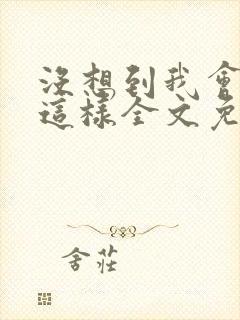 沒想到我會
這樣全文免
舍莊